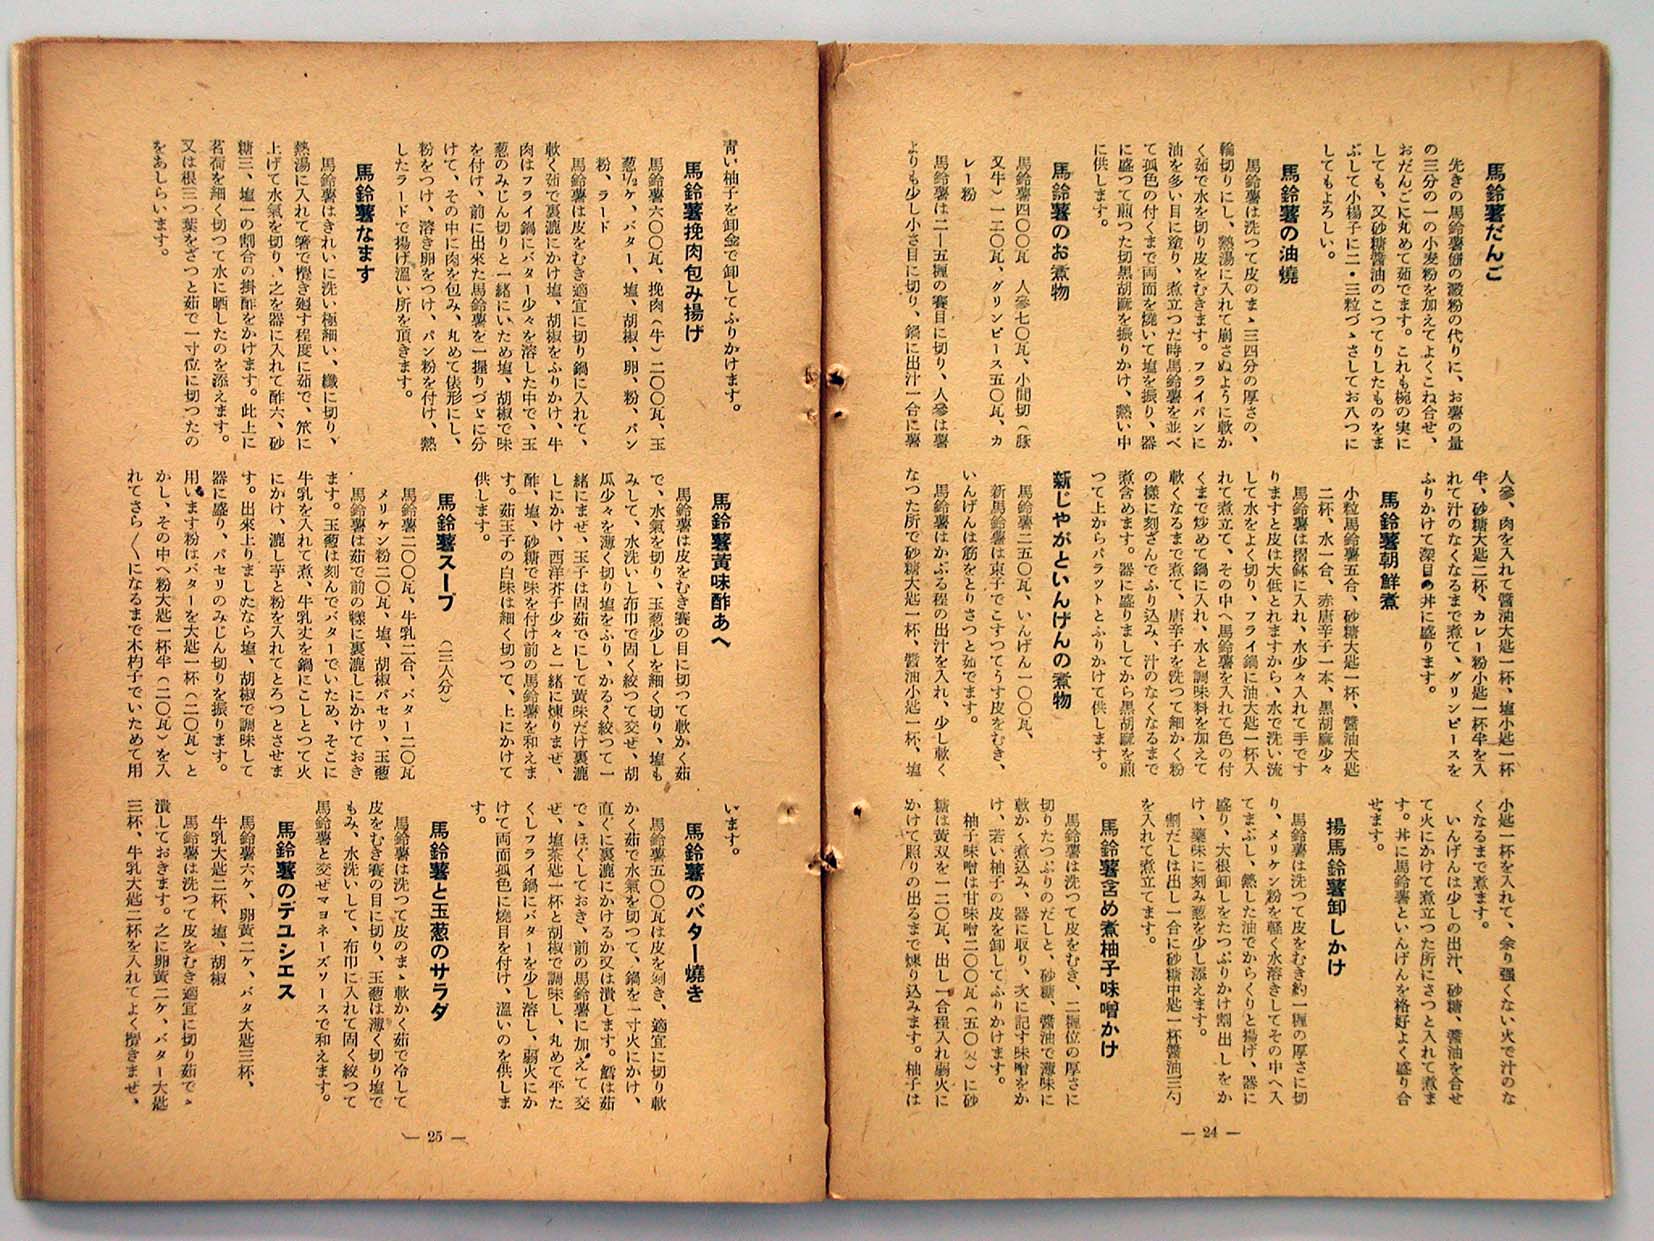 馬鈴薯だんご
先きの馬鈴薯餅の澱粉の代りに、お薯の量
の三分の一の小麦粉を加えてよくこね合せ、
おだんごに丸めて茹でます。これも椀の実に
しても、又砂糖醤油のこつてりしたものをま
ぶして小楊子に二・三粒づゝさしてお八つに
してもよろしい。
馬鈴薯の油燒
馬鈴薯は洗つて皮のまゝ三四分の厚さの、
輪切りにし、熱湯に入れて崩さぬように軟か
く茹で水を切り皮をむきます。フライパンに
油を多い目に塗り、煮立つた時馬鈴薯を並べ
て孤色の付くまで両面を燒いて塩を振り、器
に盛つて煎つた切黒胡麻を振りかけ、熱い中
に供します。
馬鈴薯のお煮物
馬鈴薯四〇〇瓦 人參七〇瓦、小間切（豚
又牛）一二〇瓦、グリンピース五〇瓦、カ
レー粉
馬鈴薯は二—五糎の賽目に切り、人參は薯
よりも少し小さ目に切り、鍋に出汁一合に薯
人參、肉を入れて醤油大匙一杯、塩小匙一杯
半、砂糖大匙二杯、カレー粉小匙一杯半を入
れて汁のなくなるまで煮て、グリンピースを
ふりかけて深目の丼に盛ります。
馬鈴薯朝鮮煮
小粒馬鈴薯五合、砂糖大匙一杯、醤油大匙
二杯、水一合、赤唐辛子一本、黒胡麻少々
馬鈴薯は摺鉢に入れ、水少々入れて手です
りますと皮は大低とれますから、水で洗い流
して水をよく切り、フライ鍋に油大匙一杯入
れて煮立て、その中へ馬鈴薯を入れて色の付
くまで炒めて鍋に入れ、水と調味料を加えて
軟くなるまで煮て、唐辛子を洗つて細かく粉
の様に刻ざんでふり込み、汁のなくなるまで
煮含めます。器に盛りましてから黒胡麻を煎
つて上からパラットとふりかけて供します。
新じやがといんげんの煮物
馬鈴薯二五〇瓦、いんげん一〇〇瓦、
新馬鈴薯は束子でこすつてうす皮をむき、
いんげんは筋をとりさつと茹でます。
馬鈴薯はかぶる程の出汁を入れ、少し軟く
なつた所で砂糖大匙一杯、醤油小匙一杯、塩
小匙一杯を入れて、余り强くない火で汁のな
くなるまで煮ます。
いんげんは少しの出汁、砂糖、醤油を合せ
て火にかけて煮立つた所にさつと入れて煮ま
す。丼に馬鈴薯といんげんを格好よく盛り合
せます。
揚馬鈴薯卸しかけ
馬鈴薯は洗つて皮をむき約一糎の厚さに切
り、メリケン粉を軽く水溶きしてその中へ入
てまぶし、熱した油でからくりと揚げ、器に
盛り、大根卸しをたつぷりかけ割出しをか
け、藥味に刻み葱を少し添えます。
割だしは出し一合に砂糖中匙一杯醤油三勺
を入れて煮立てます。
馬鈴薯含め煮柚子味噌かけ
馬鈴薯は洗つて皮をむき、二糎位の厚さに
切りたつぷりのだしと、砂糖、醤油で薄味に
軟かく煮込み、器に取り、次に記す味噌をか
け、若い柚子の皮を卸してふりかけます。
柚子味噌は甘味噌二〇〇瓦（五〇匁）に砂
糖は黄双を一二〇瓦、出し一合程入れ弱火に
かけて照りの出るまで煉り込みます。柚子は
— 24 —
青い柚子を卸金で卸してふりかけます。
馬鈴薯挽肉包み揚げ
馬鈴薯六〇〇瓦、挽肉（牛）二〇〇瓦、玉
葱½ケ、バター、塩、胡椒、卵、粉、パン
粉、ラード
馬鈴薯は皮をむき適宜に切り鍋に入れて、
軟く茹で裏漉にかけ塩、胡椒をふりかけ、牛
肉はフライ鍋にバター少々を溶した中で、玉
葱のみじん切りと一緒にいため塩、胡椒で味
を付け、前に出來た馬鈴薯を一握りづゝに分
けて、その中に肉を包み、丸めて俵形にし、
粉をつけ、溶き卵をつけ、パン粉を付け、熱
したラードで揚げ溫い所を頂きます。
馬鈴薯なます
馬鈴薯はきれいに洗い極細い、纖に切り、
熱湯に入れて箸で攪き廻す程度に茹で、笊に
上げて水氣を切り、之を器に入れて酢六、砂
糖三、塩一の割合の掛酢をかけます。此上に
茗荷を細く切つて水に晒したのを添えます。
又は根三つ葉をざつと茹で一寸位に切つたの
をあしらいます。
馬鈴薯黄味酢あへ
馬鈴薯は皮をむき賽の目に切つて軟かく茹
で、水氣を切り、玉葱少しを細く切り、塩も
みして、水洗いし布巾で固く絞つて交ぜ、胡
瓜少々を薄く切り塩をふり、かるく絞つて一
緒にまぜ、玉子は固茹でにして黄味だけ裏漉
しにかけ、西洋芥子少々と一緒に煉りまぜ、
酢、塩、砂糖で味を付け前の馬鈴薯を和えま
す。茹玉子の白味は細く切つて、上にかけて
供します。
馬鈴薯スープ （三人分）
馬鈴薯二〇〇瓦、牛乳二合、バター二〇瓦
メリケン粉二〇瓦、塩、胡椒パセリ、玉葱
馬鈴薯は茹で前の様に裏漉しにかけておき
ます。玉葱は刻んでバターでいため、そこに
牛乳を入れて煮、牛乳丈を鍋にこしとつて火
にかけ、漉し芋と粉を入れてとろつとさせま
す。出來上りましたなら塩、胡椒で調味して
器に盛り、パセリのみじん切りを振ります。
用います粉はバターを大匙一杯（二〇瓦）と
かし、その中へ粉大匙一杯半（二〇瓦）を入
れてさら〱になるまで木杓子でいためて用
います。
馬鈴薯のバター燒き
馬鈴薯五〇〇瓦は皮を剥き、適宜に切り軟
かく茹で水氣を切つて、鍋を一寸火にかけ、
直ぐに裏漉にかけるか又は潰します。鱈は茹
でゝほぐしておき、前の馬鈴薯に加えて交
ぜ、塩茶匙一杯と胡椒で調味し、丸めて平た
くしフライ鍋にバターを少し溶し、弱火にか
けて両面孤色に燒目を付け、溫いのを供しま
す。
馬鈴薯と玉葱のサラダ
馬鈴薯は洗つて皮のまゝ軟かく茹で冷して
皮をむき賽の目に切り、玉葱は薄く切り塩で
もみ、水洗いして、布巾に入れて固く絞つて
馬鈴薯と交ぜマヨネーズソースで和えます。
馬鈴薯のデユシエス
馬鈴薯六ケ、卵黄二ケ、バタ大匙三杯、
牛乳大匙二杯、塩、胡椒
馬鈴薯は洗つて皮をむき適宜に切り茹でゝ
潰しておきます。之に卵黄二ケ、バター大匙
三杯、牛乳大匙二杯を入れてよく攪きまぜ、
— 25 —